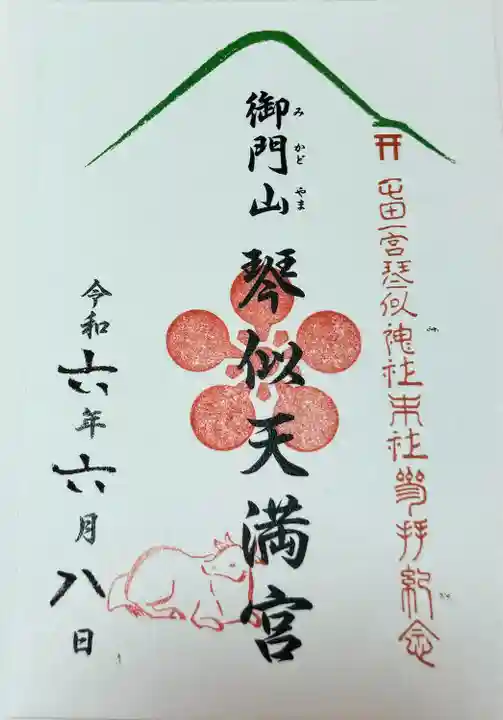 屯田一宮琴似神社末社参拝紀念
御門山 琴似天満宮
み かど やま
令和六年六月八日